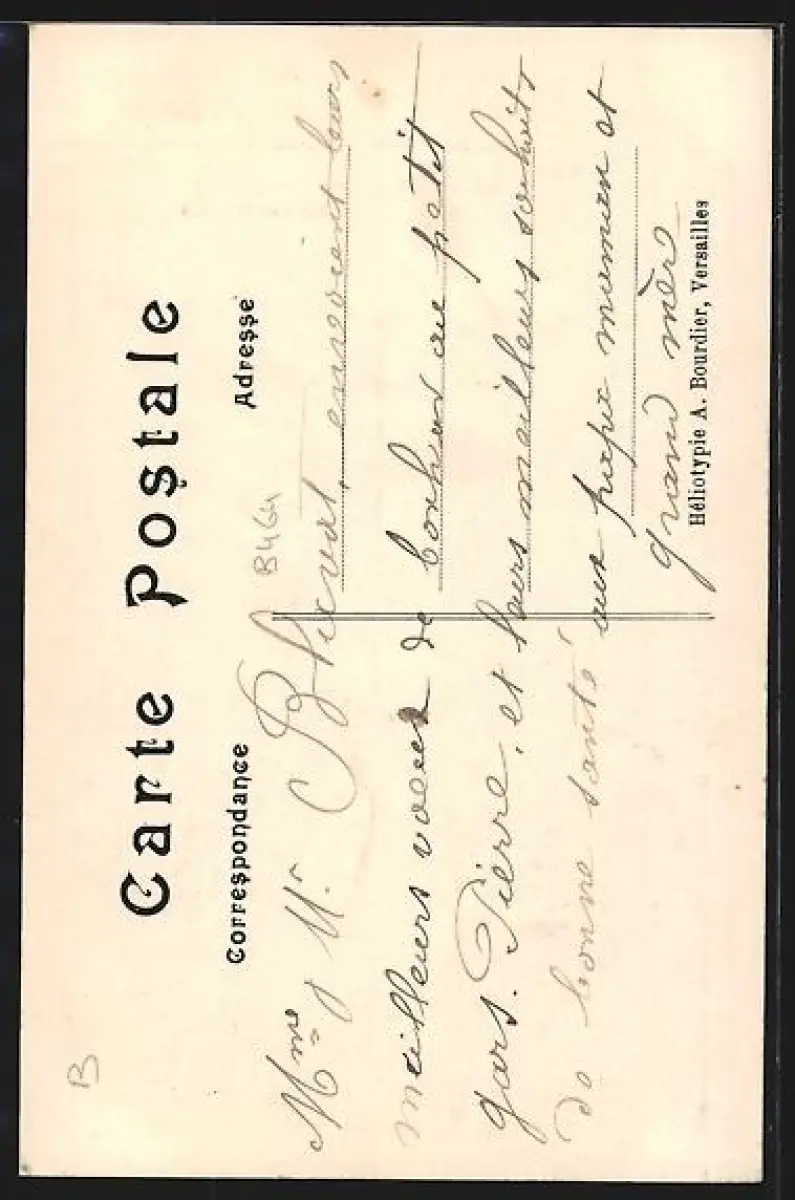 Carte Postale
Correspondance
Adresse
B
B464
Mme & Mr envoient leurs
meilleurs voeux de bonheur au petit
gars. Pierre, et leurs meilleurs souhaits
de bonne santé aux papa maman et
grand mère
Héliotypie A. Bourdier, Versailles